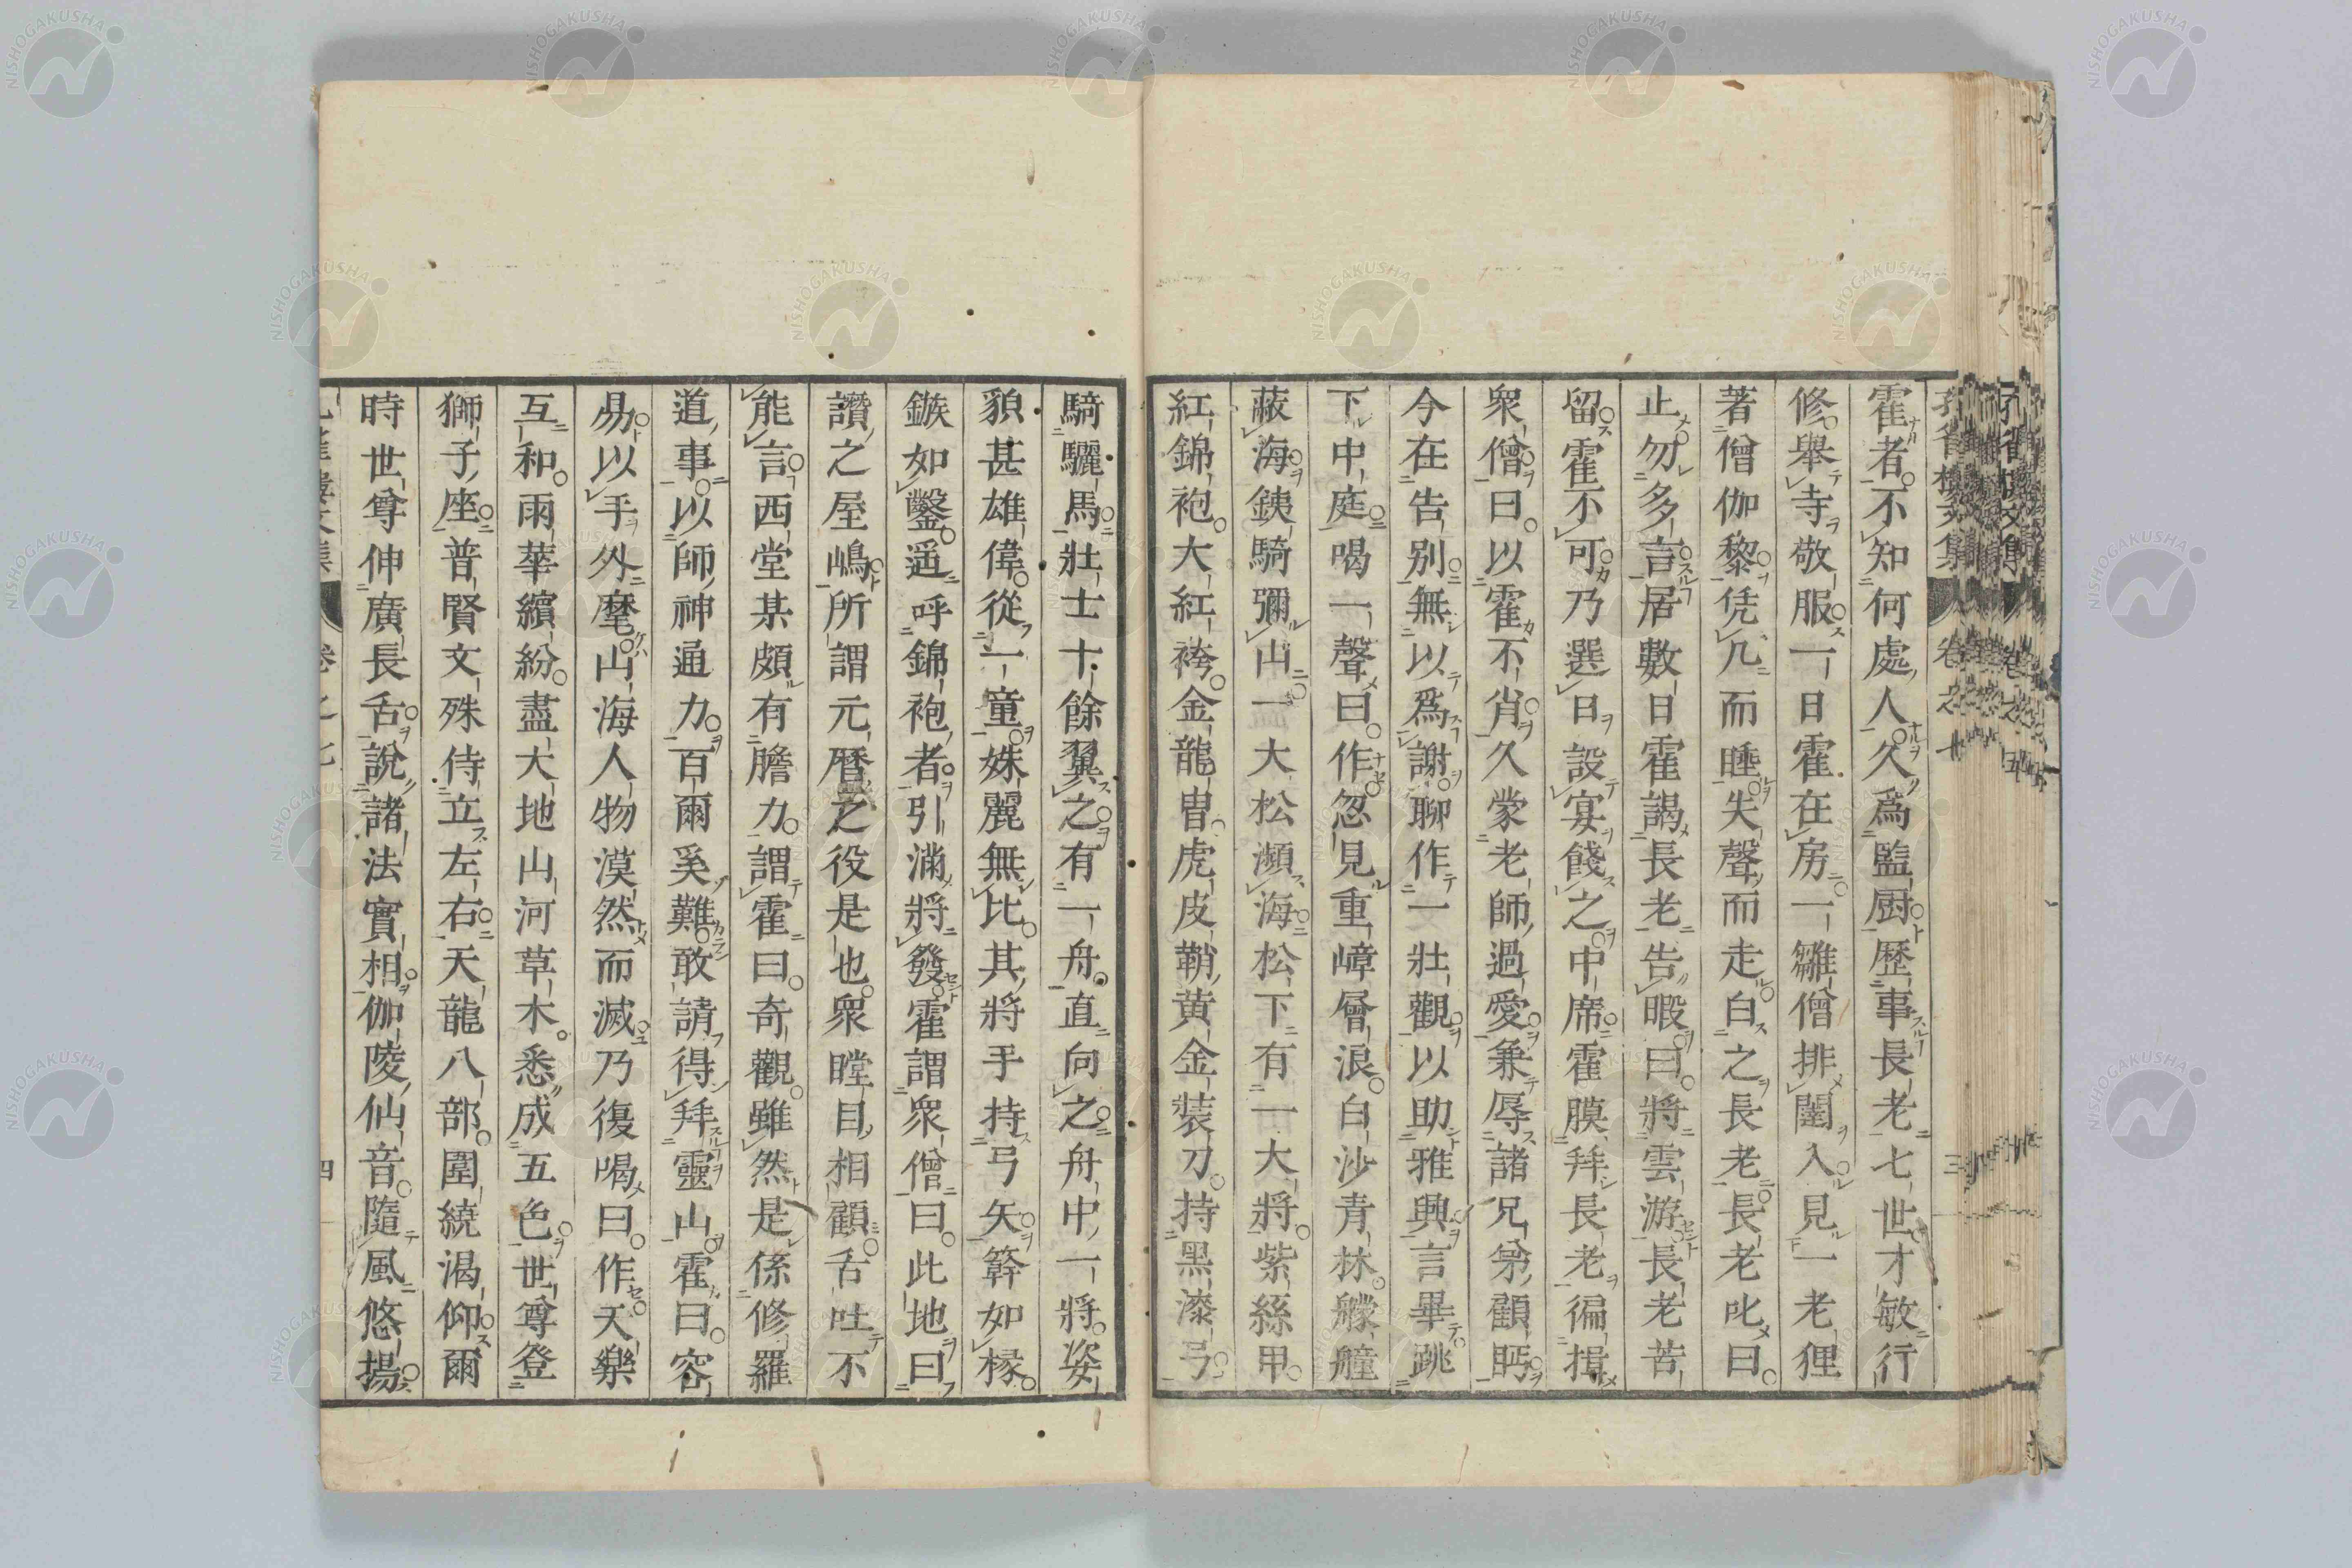 霍者不知何處人久爲監厨歷事長老七世才敏行
修舉寺敬服一日霍在房一雛僧排闥入見一老狸
著僧伽黎凭几而睡失聲而走白之長老長老叱曰
止勿多言居數日霍謁長老告暇曰將雲游長老苦
留霍不可乃選日設宴餞之中席霍膜拜長老徧揖
衆僧曰以霍不肖久蒙老師過愛兼辱諸兄弟顧眄
今在告別無以爲謝聊作一壯觀以助雅興言畢跳
下中庭喝一聲曰作忽見重嶂層浪白沙青林艨艟
蔽海鐵騎彌山一大松瀕海松下有一大將紫絲甲
紅錦袍大紅袴金龍冑虎皮鞘黃金裝刀持黑漆弓
騎驪馬壯士十餘翼之有一舟直向之舟中一將姿
貌甚雄偉從一童姝麗無比其將手持弓矢簳如椽
鏃如鑿遥呼錦袍者引滿將發霍謂衆僧曰此地曰
讚之屋嶋所謂元曆之役是也衆瞠目相顧舌吐不
能言西堂某頗有膽力謂霍曰奇觀雖然是係修羅
道事以師神通力百爾奚難敢請得拜靈山霍曰容
易以手外麾山海人物漠然而滅乃復喝曰作天樂
互和雨華繽紛盡大地山河草木悉成五色世尊登
獅子座普賢文殊侍立左右天龍八部圍繞渴仰爾
時世尊伸廣長舌說諸法實相伽陵仙音隨風悠揚
卷之七
四
NISHOGAKUSHA